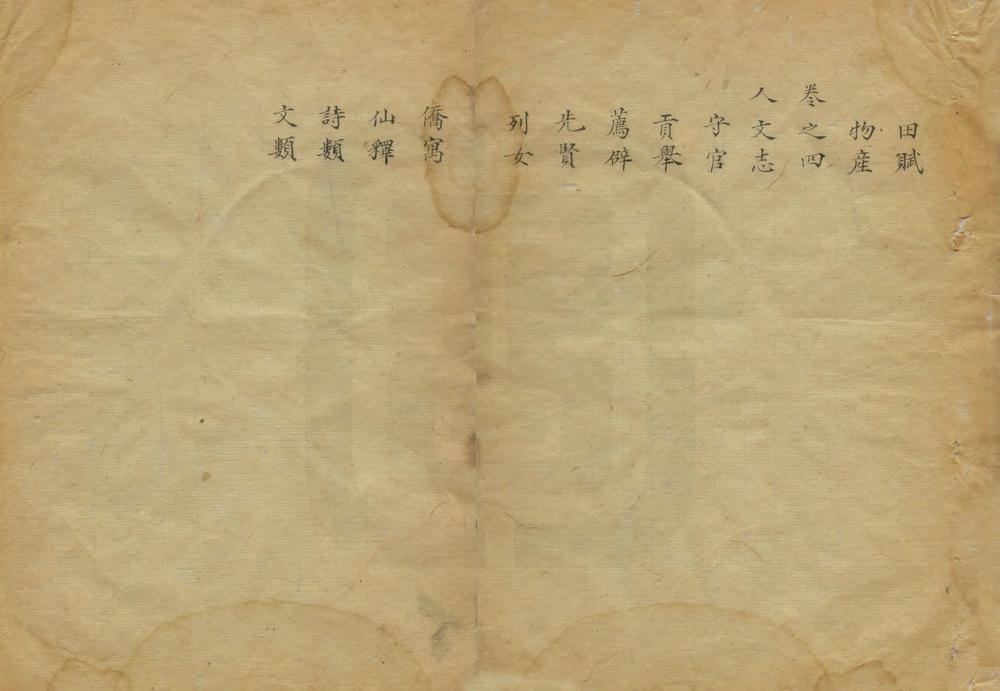 田賦
物產
卷之四
人文志
守官
貢舉
薦辟
先賢
列女
僑寓
仙釋
詩類
文類